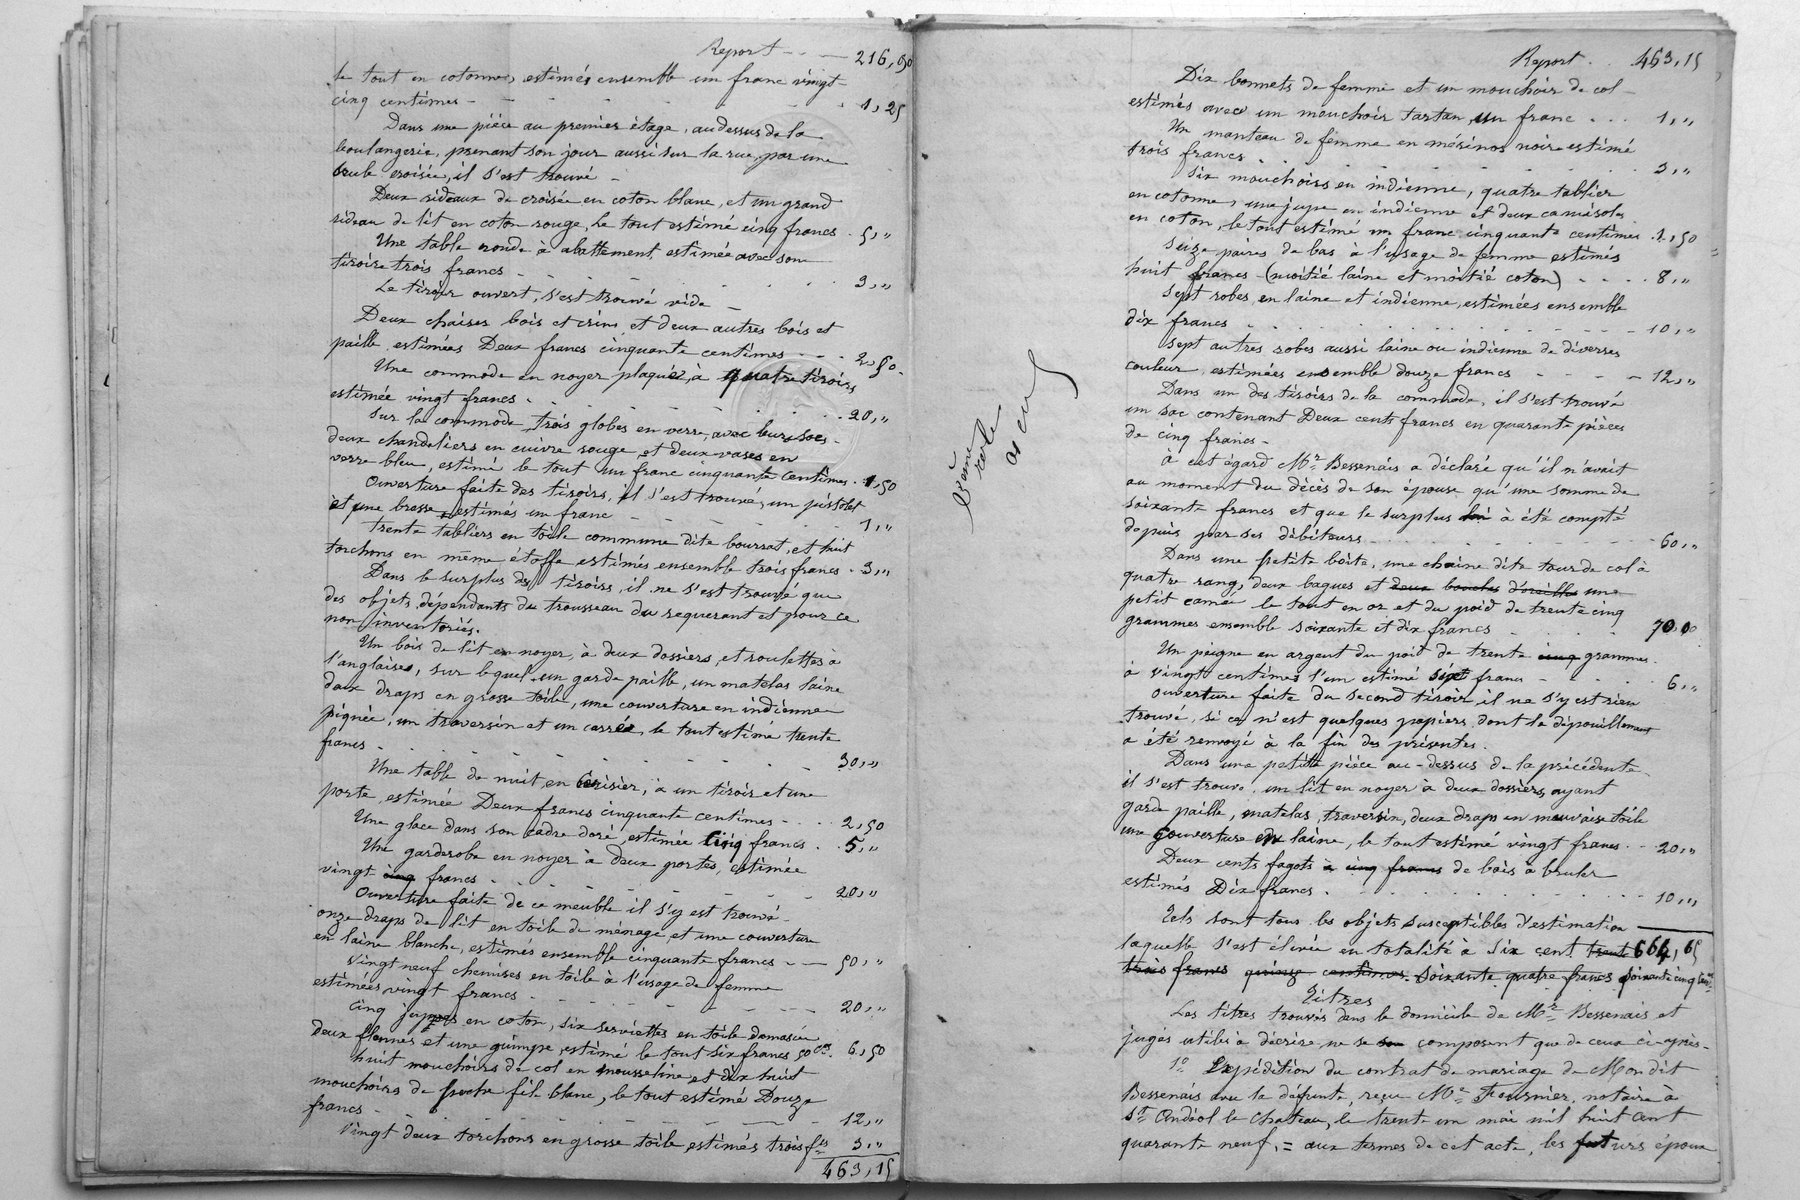 Report - - - 216,90
le tout en cotonne, estimés ensemble un franc vingt
cinq centimes - 1,25
Dans une pièce au premier étage, au dessus de la
boulangerie, prenant son jour aussi sur la rue, par une
seule croisée, il s'est trouvé -
Deux rideaux de croisée en coton blanc, et un grand
rideau de lit en coton rouge, le tout estimé cinq francs - 5,"
Une table ronde à abattement estimée avec son
tiroir trois francs - 3,"
Le tiroir ouvert, s'est trouvé vide -
Deux chaises bois et crins, et deux autres bois et
paille, estimées Deux francs cinquante centimes - - - 2,50
Une commode en noyer plaquée, à quatre tiroirs
estimée vingt francs - 20,"
Sur la commode, trois globes en verre, avec leurs socs -
deux chandeliers en cuivre rouge et deux vases en
verre bleu, estimé le tout un franc cinquante centimes - 1,50
Ouverture faite des tiroirs, il s'est trouvé, un pistolet
et une brosse estimés un franc - 1,"
trente tabliers en toile commune dite bourrat, et huit
torchons en même étoffe, estimés ensemble trois francs - 3,"
Dans le surplus des tiroirs, il ne s'est trouvé que
des objets dépendants du trousseau du requerant et pour ce
non inventoriés.
Un bois de lit en noyer, à deux dossiers, et roulettes à
l'anglaise, sur lequel un garde paille, un matelas laine
deux draps en grosse toile, une couverture en indienne
piquée, un traversin et un carrée, le tout estimé trente
francs - 30,"
Une table de nuit, en Cerisier, à un tiroir et une
porte, estimée Deux francs cinquante centimes - 2,50
Une glace dans son cadre doré, estimée Cinq francs - 5,"
Une garderobe en noyer à deux portes, estimée
vingt cinq francs - 20,"
Ouverture faite de ce meuble il s'y est trouvé -
onze draps de lit en toile de ménage, et une couverture
en laine blanche, estimés ensemble cinquante francs - 50,"
Vingt neuf chemises en toile à l'usage de femme
estimées vingt francs - 20,"
Cinq jupes en coton, six serviettes en toile damassée
deux et une guimpe, estimé le tout six francs 50 ces - 6,50
huit mouchoirs de col en mousseline, et dix huit
mouchoirs de poche fil blanc, le tout estimé Douze
francs - 12,"
Vingt deux torchons en grosse toile estimés trois fcs 3,"
463,15
Report - 463,15
Dix bonnets de femme et un mouchoir de col -
estimés avec un mouchoir tartan, un franc - 1,"
Un manteau de femme en mérinos noire estimé
trois francs - 3,"
Six mouchoirs en indienne, quatre tablier
en cotonne, une jupe en indienne et deux camisoles
en coton, le tout estimé un franc cinquante centimes - 1,50
Seize paires de bas à l'usage de femme estimés
huit francs - (moitié laine et moitié coton) - 8,"
Sept robes, en laine et indienne, estimées ensemble
dix francs - 10,"
Sept autres robes aussi laine ou indienne de diverses
couleur, estimées ensemble douze francs - 12,"
Dans un des tiroirs de la commode, il s'est trouvé
un sac contenant Deux cents francs en quarante pièces
de cinq francs -
à cet égard Mr Bessenais a déclaré qu'il n'avait
au moment du décès de son épouse qu'une somme de
soixante francs et que le surplus lui à été compté
depuis par ses débiteurs - 60,"
Dans une petite boîte, une chaîne dite tour de col à
quatre rang, deux bagues et deux boucles d'oreilles une
petit camée le tout en or et du poid de trente cinq
grammes ensemble soixante et dix francs - 70,0
Un peigne en argent du poid de trente cinq grammes.
à vingt centimes l'un estimé six francs - 6,"
Ouverture faite du second tiroir, il ne s'y est rien
trouvé, si ce n'est quelques papiers dont le dépouillement
a été renvoyé à la fin des présentes.
Dans une petite pièce au-dessus de la précédente
il s'est trouvé un lit en noyer à deux dossiers, ayant
garde paille, matelas, traversin, deux draps en mauvaise toile
une couverture en laine, le tout estimé vingt francs - 20,"
Deux cents fagots à cinq francs de bois à bruler
estimés Dix francs - 10,"
Tels sont tous les objets susceptibles d'estimation
laquelle s'est élevée en totalité à Six cent trente 664,65
trois francs quinze centimes Soixante quatre francs soixante cinq
Titres
Les titres trouvés dans le domicile de Mr Bessenais et
jugés utiles à décrire ne se composent que de ceux ci-après -
1o Expédition du contrat de mariage de Mondit
Bessenais avec la défunte, reçu Me Fournier, notaire à
St Andéol le Chateau, le trente un mai mil huit cent
quarante neuf. = aux termes de cet acte, les futurs époux